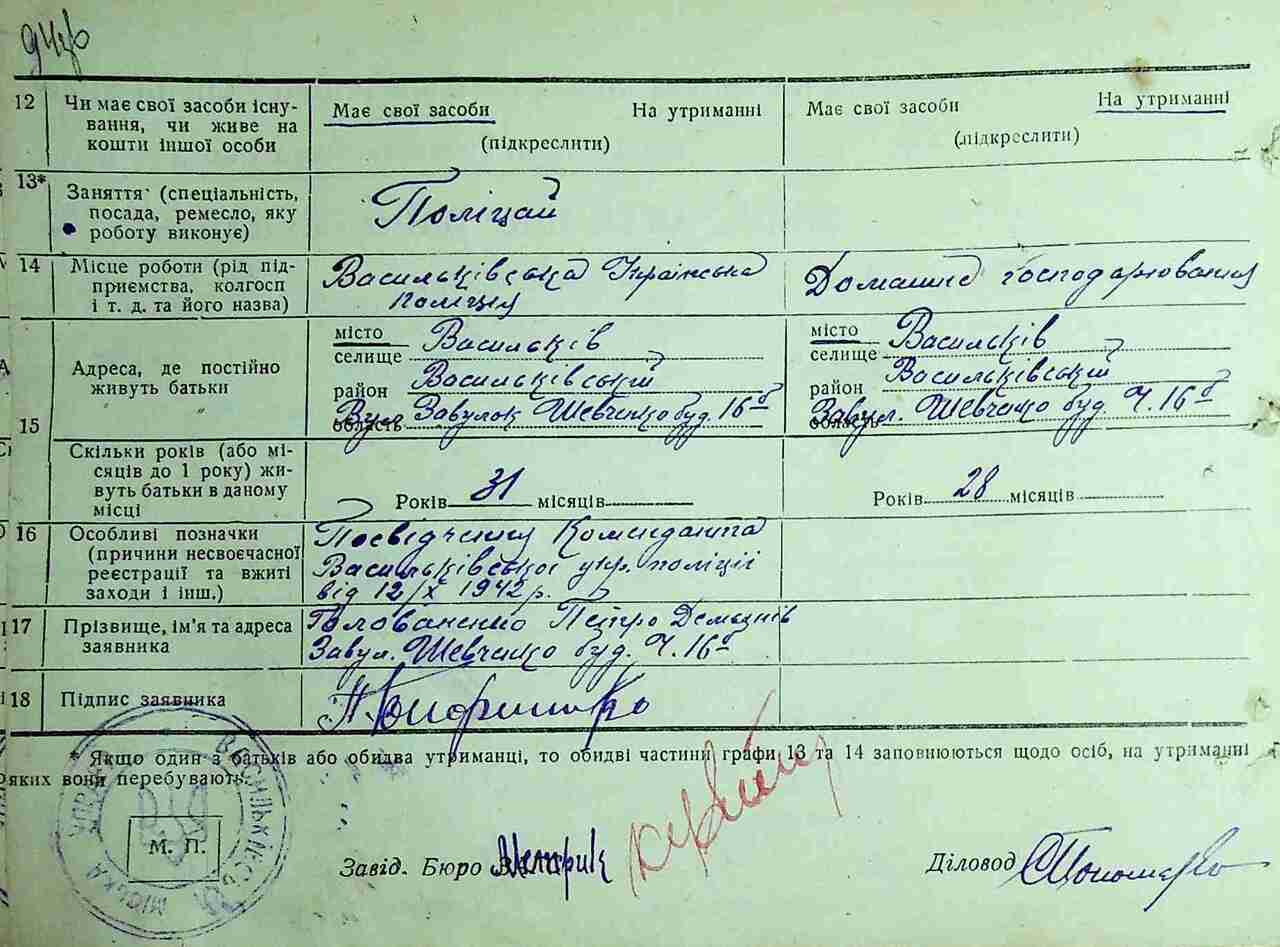 12 Чи має свої засоби існу-
вання, чи живе на
кошти іншої особи
Має свої засоби На утриманні
(підкреслити)
Має свої засоби На утриманні
(підкреслити)
13* Заняття (спеціальність,
посада, ремесло, яку
роботу виконує)
Поліцай
14 Місце роботи (рід під-
приємства, колгосп
і т. д. та його назва)
Васильківська Українська
поліція
Домашнє господарювання
15
Адреса, де постійно
живуть батьки
місто Васильків
селище
район Васильківський
Вул. Завулок Шевченко буд. 16б
область
місто Васильків
селище
район Васильківський
Завул. Шевченко буд. Ч. 16б
область
Скільки років (або мі-
сяців до 1 року) жи-
вуть батьки в даному
місці
Років 31 місяців
Років 28 місяців
16 Особливі позначки
(причини несвоєчасної
реєстрації та вжиті
заходи і інш.)
Посвідчення Коменданта
Васильківської укр. поліції
від 12/X 1942 р.
17 Прізвище, ім'я та адреса
заявника
Петро Демянів
Завул. Шевченко буд. Ч. 16б
18 Підпис заявника
* Якщо один з батьків або обидва утриманці, то обидві частини графи 13 та 14 заповнюються щодо осіб, на утриманні
яких вони перебувають.
ВАСИЛЬКІВСЬКА МІСЬКА УПРАВА
М. П.
Завід. Бюро
Діловод